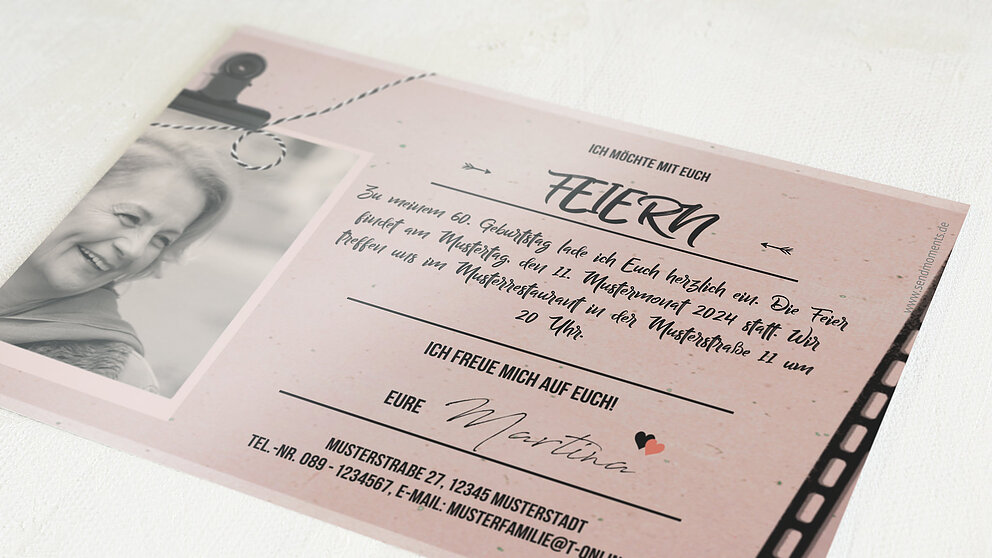 ICH MÖCHTE MIT EUCH
FEIERN
Zu meinem 60. Geburtstag lade ich Euch herzlich ein. Die Feier
findet am Mustertag, den 11. Mustermonat 2024 statt. Wir
treffen uns im Musterrestaurant in der Musterstraße 11 um
20 Uhr.
ICH FREUE MICH AUF EUCH!
EURE Martina
MUSTERSTRAßE 27, 12345 MUSTERSTADT
TEL. -NR. 089 - 1234567, E-MAIL: MUSTERFAMILIE@T-ONLIN
www.sendmoments.de